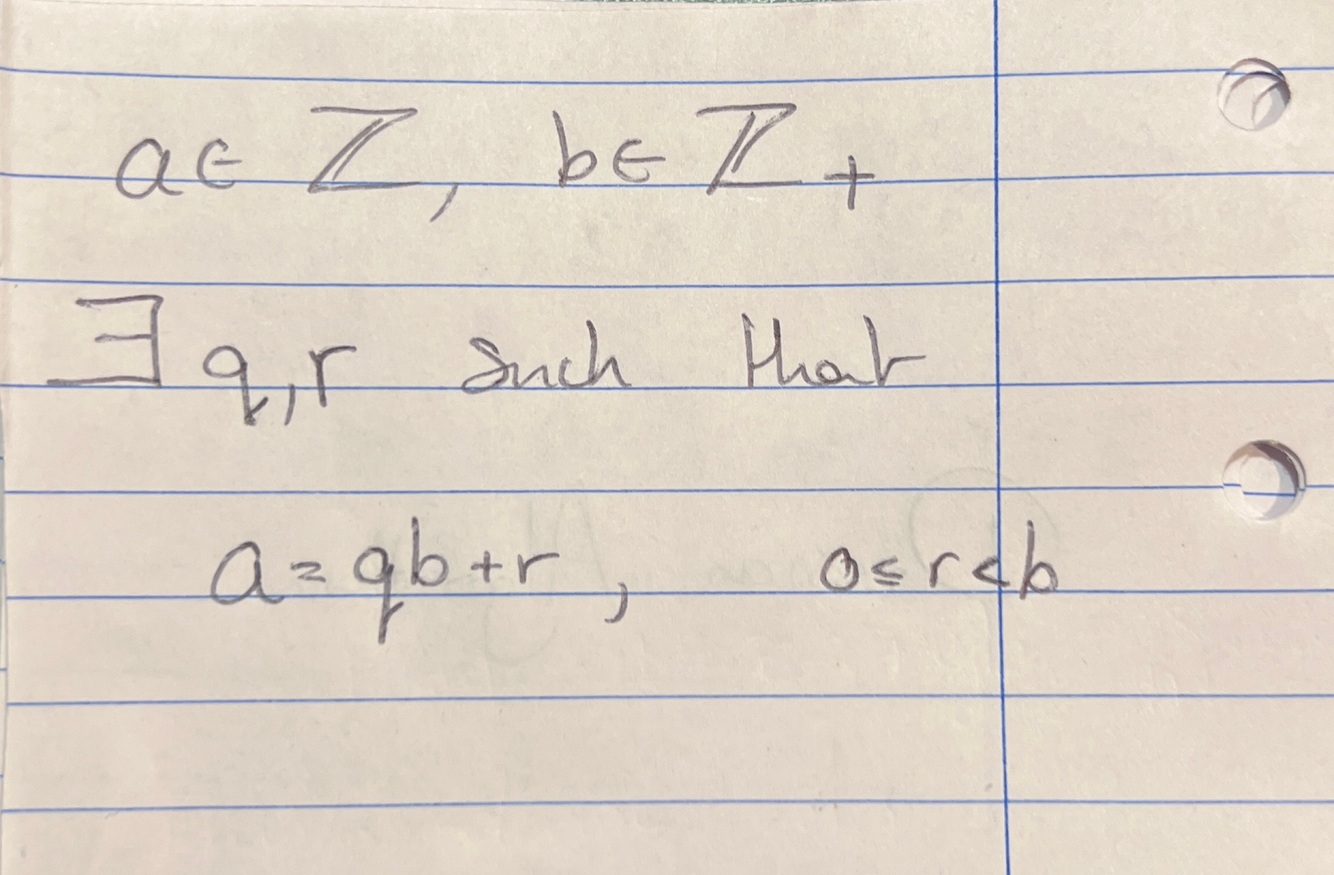 a∈ ℤ, b∈ ℤ+
∃ q,r such that
a = qb+r, 0≤r<b